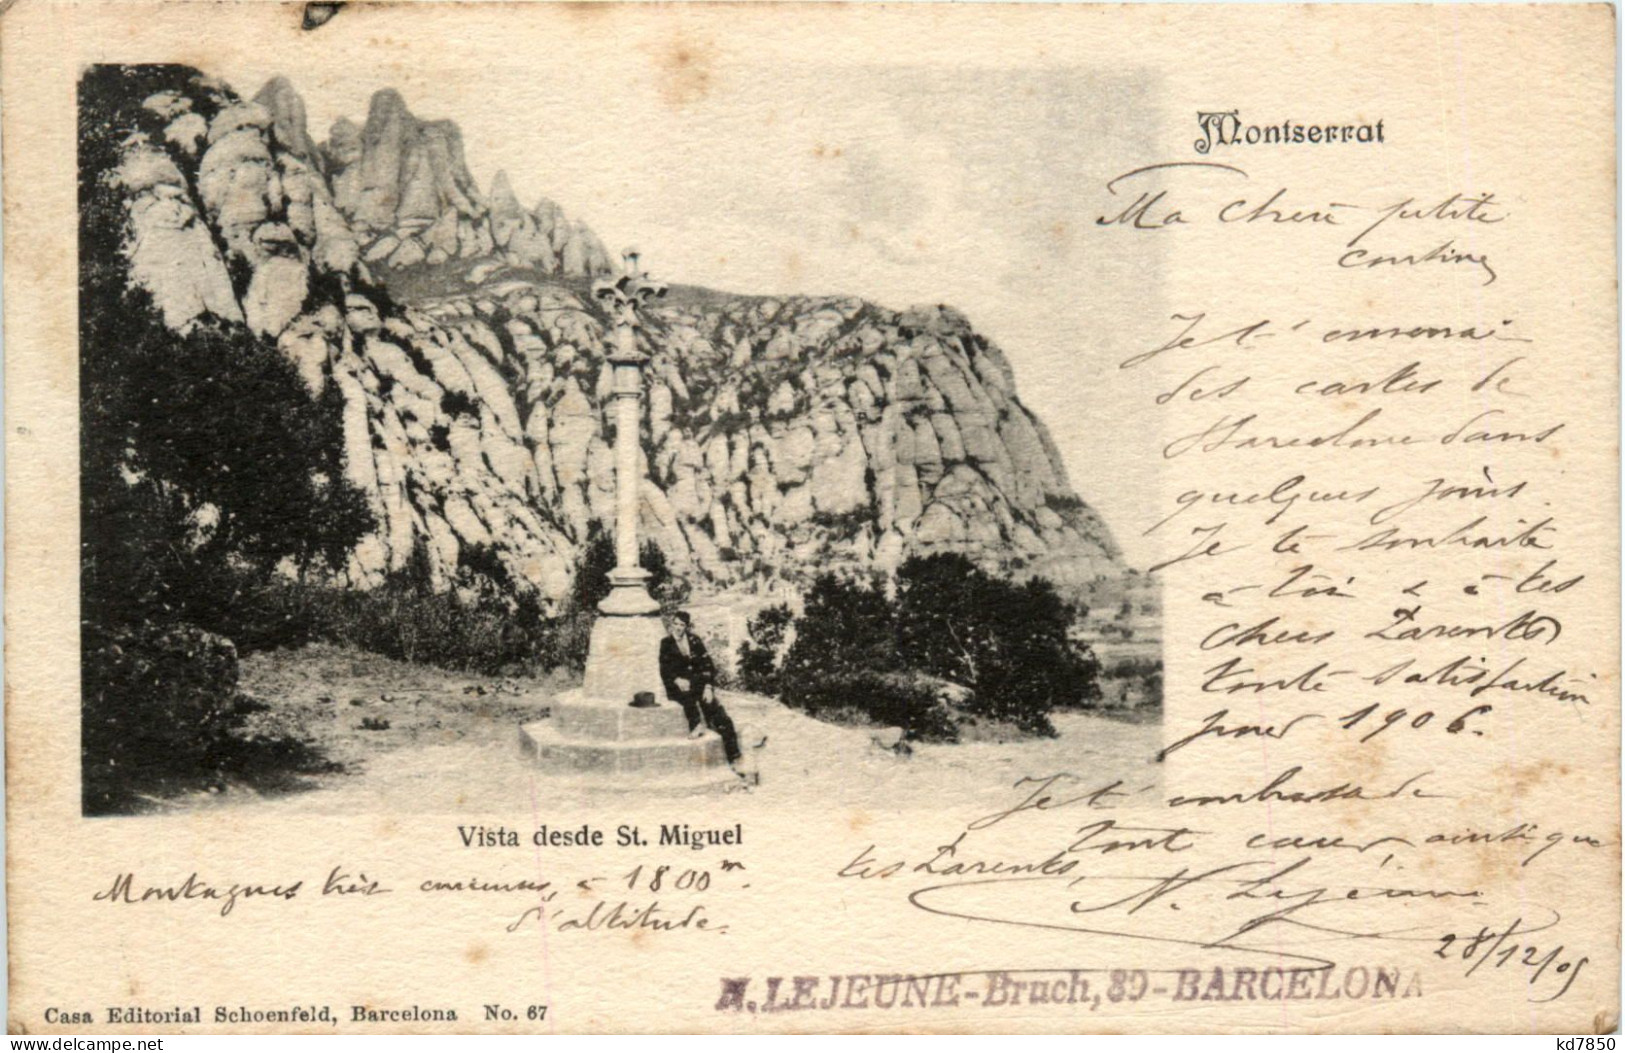 Montserrat
Ma chère petite
cousine,
Je t'enverrai
des cartes de
Barcelone dans
quelques jours.
Je te souhaite
à toi & à tes
chers Parents
toute satisfaction
pour 1906.
Je t'embrasse de
tout cœur ainsi que
tes Parents,
N. Lejeune
28/12/05
Vista desde St. Miguel
Montagnes très curieuses, à 1800m.
d'altitude.
N. LEJEUNE-Bruch, 89-BARCELONA
Casa Editorial Schoenfeld, Barcelona No. 67
delcampe.net
kd7850